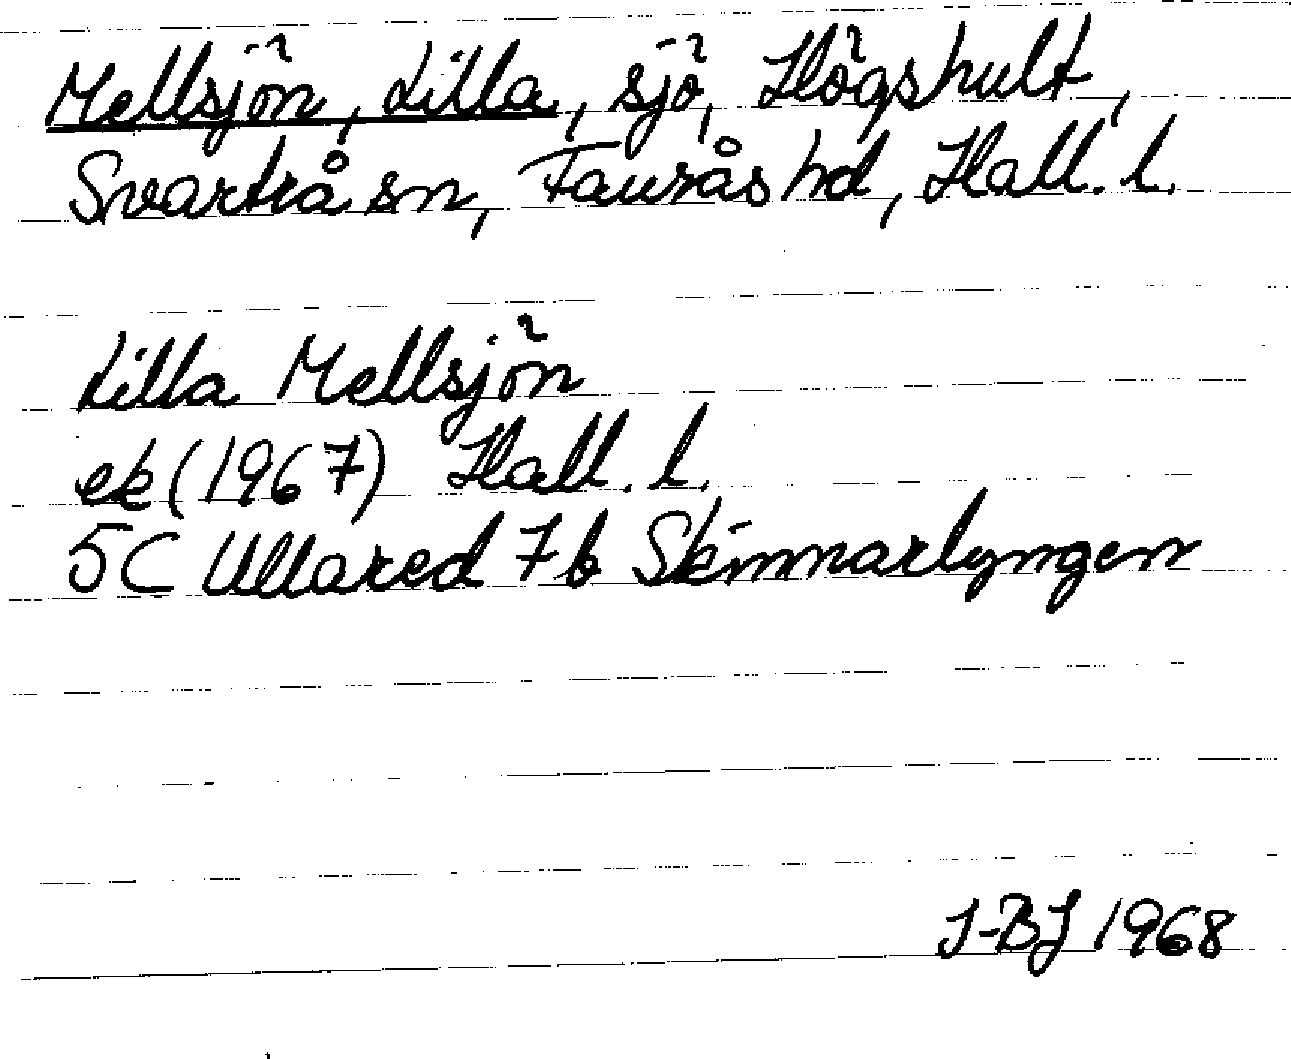 Mellsjön, Lilla, sjö, Högshult,
Svartrå sn, Faurås hd, Hall. l.
Lilla Mellsjön
ek (1967) Hall. l.
5C Ullared 7b Skinnarlyngen
I-BJ 1968